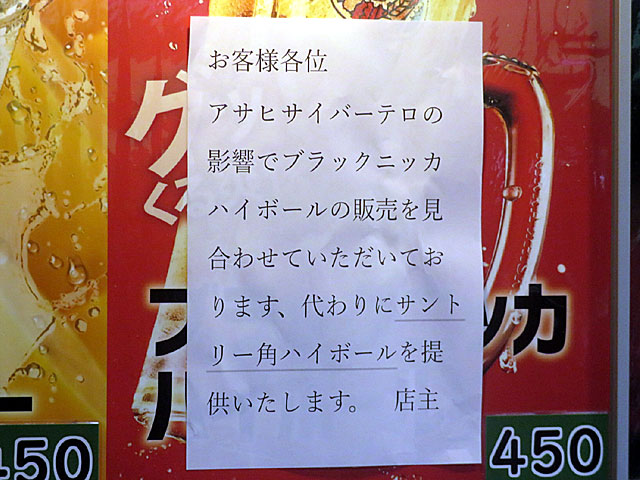 お客様各位
アサヒサイバーテロの
影響でブラックニッカ
ハイボールの販売を見
合わせていただいてお
ります、代わりにサント
リー角ハイボールを提
供いたします。 店主
ッカ
450
450